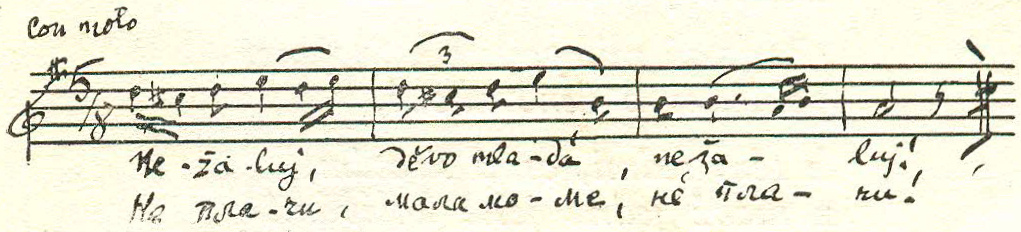 Con moto
5/8
3
Ne-ža-luj, děvo mla-dá, neža- luj!,
Не пла-чи, мала мо-ме, не пла- чи!